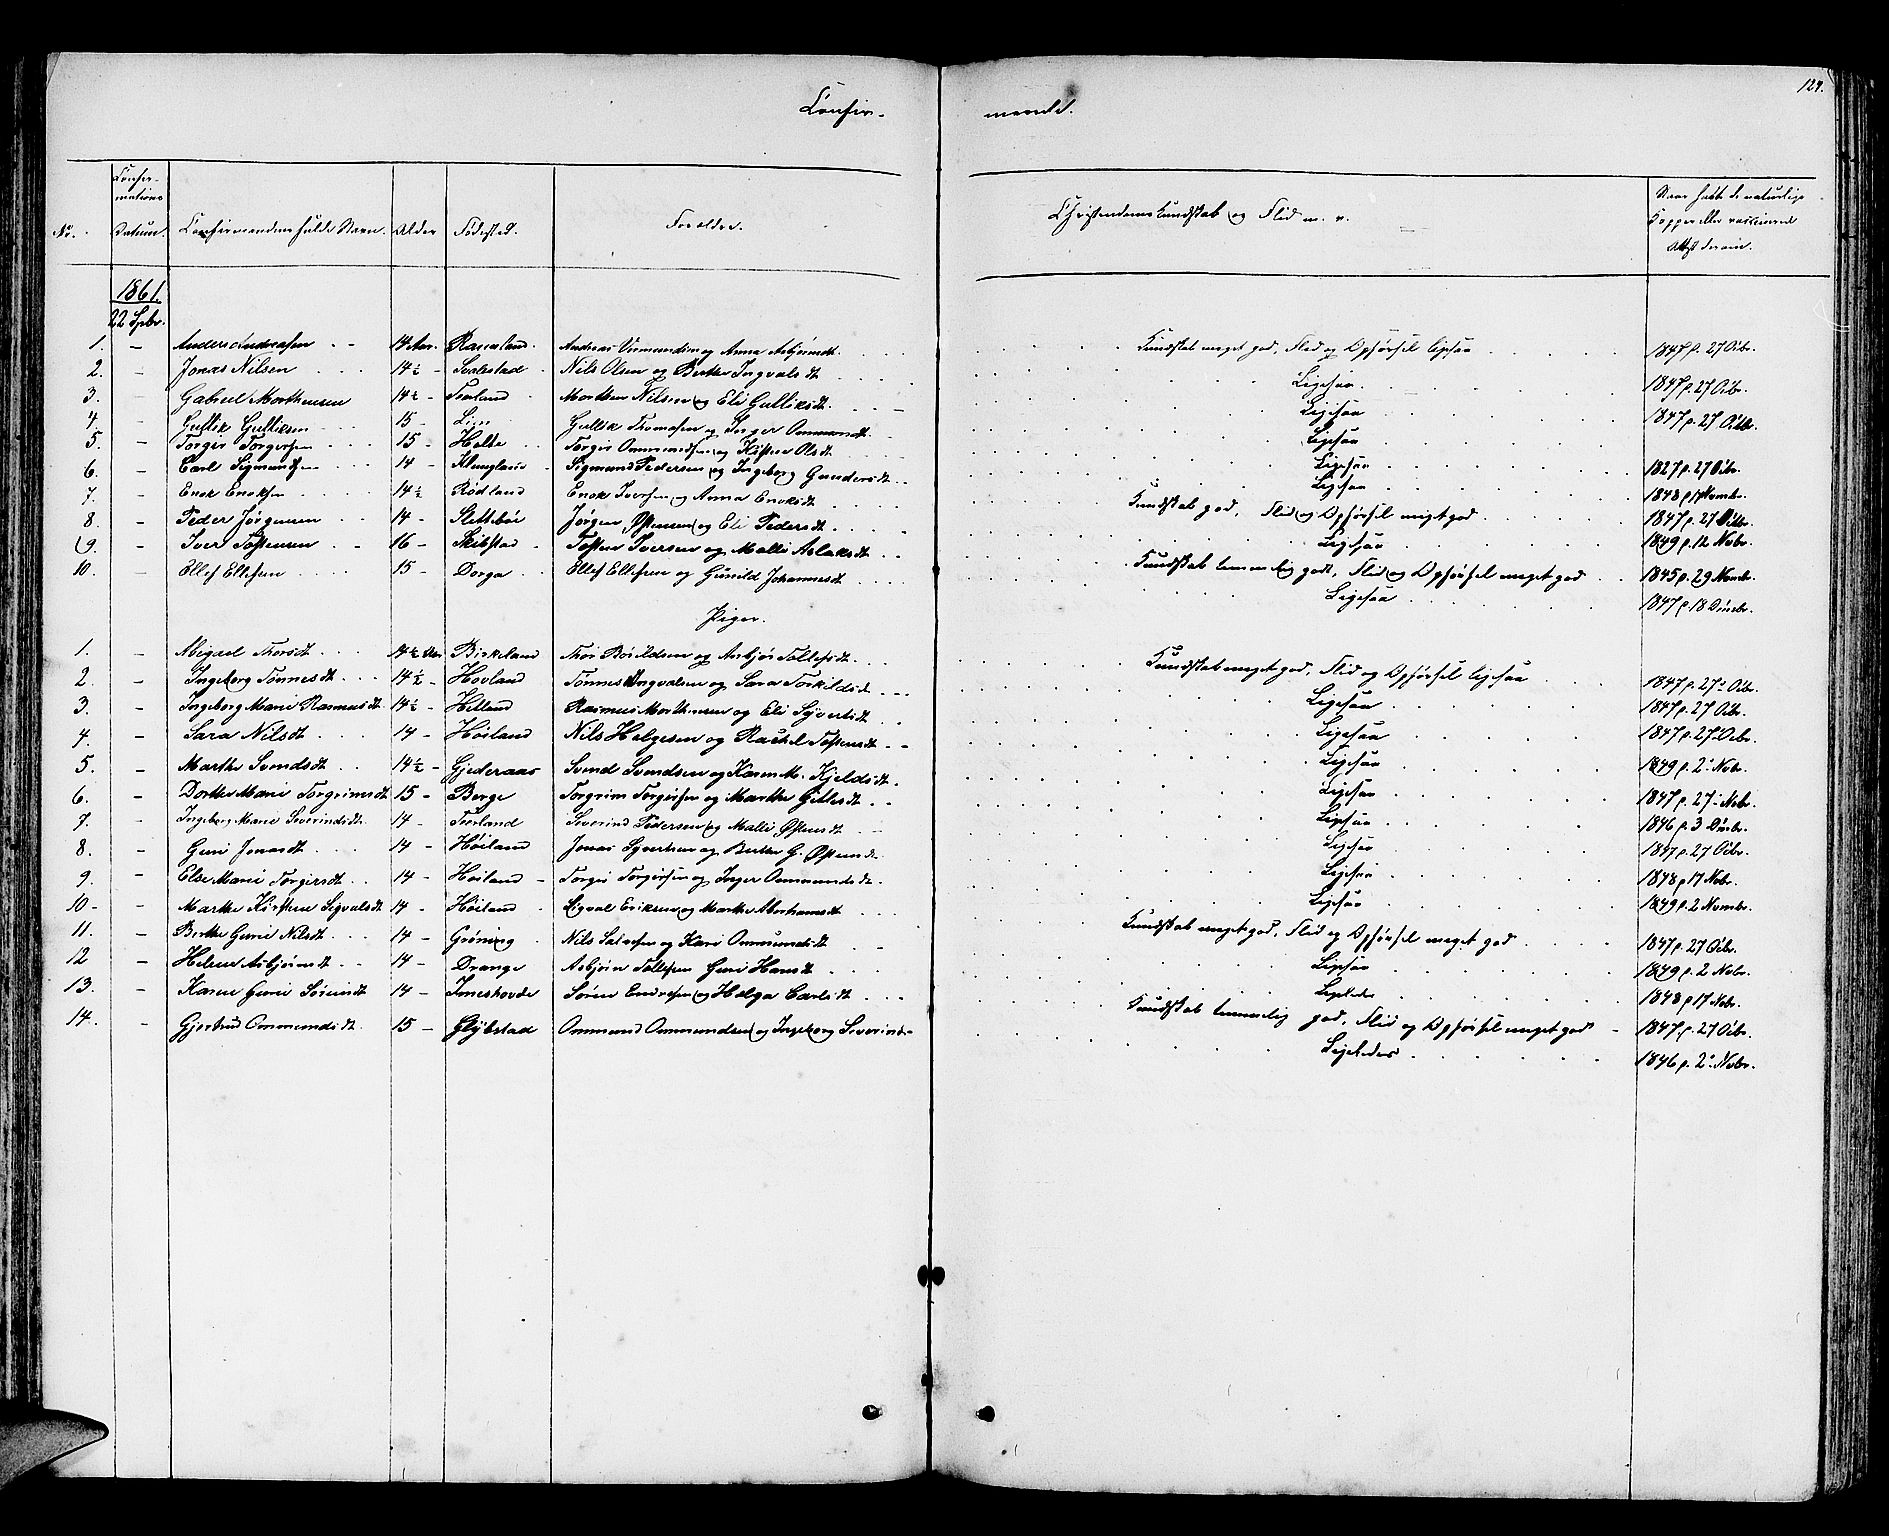 Confir- mende.
124.
No. Confirmations Datum. Confirmandens fulde Navn. Alder Fødested. Forældre. Christendoms Kundskab og Flid m. v. Naar havte de naturlige Kopper eller vaccinerede Attest derom.
1861.
22 Spbr.
1. – Anders Andreasen 14 Aar. Andreas Osmundsen og Anna Asbjørnsdt. Kundskab meget god, Flid og Opførsel ligesaa 1847 p. 27 Octbr.
2. – Jonas Nilsen 14½ – Svalestad Nils Olsen og Berthe Ingvalsdt Ligesaa. 1847 p. 27 Octbr.
3. – Gabriel Morthensen 14½ – Morthen Nilsen og Eli Gulliksdt. Ligesaa 1847 p. 27 Octbr.
4. – Gullik Gulliksen 15 – Lien Gullik Thomasen og Inger Ommundsdt. Ligesaa
5. – Torger Torgersen 15 – Holte Torger Ommundsen og Kistine Olsdt Ligesaa 1827 p. 27 Octbr.
6. – Carl Sigmundsen 14 – Sigmund Pedersen og Ingeborg Gundersdt Ligesaa 1848 p 17 Novmbr.
7. – Enok Enoksen 14½ Rødland Enok Iversen og Anna Enoksdt Kundskab god, Flid og Opførsel meget god 1847 p. 27 Octbr.
8. – Peder Jørgensen 14 – Slettebøe Jørgen Østensen og Eli Pedersdt Ligesaa 1849 p. 12 Nvbr.
9. – Iver Tostensen 16 – Skibstad Tosten Iversen og Malli Aslaksdt Kundskab temmelig godt, Flid og Opførsel meget god 1845 p. 29 Novmbr.
10. – Ellef Ellefsen 15 – Dorga Ellef Ellefsen og Gunild Johannesdt Ligesaa 1847 p. 18 Decmbr.
Piger.
1. – Abigael Thorsdt 14½ Aar Birkeland Thor Boieldsen og Asbjør Tollefsdt. Kundskab meget god, Flid og Opførsel ligesaa 1847 p. 27 Octbr.
2. – Ingeborg Tønnesdt 14½ – Hovland Tønnes Ingvalsen og Sara Torkildsdt Ligesaa 1847 p. 27 Octbr.
3. – Ingeborg Marie Rasmusdt 14½ – Helland Rasmus Morthensen og Eli Syvertsdt Ligesaa 1847 p. 27 Octbr.
4. – Sara Nilsdt 14 – Høiland Nils Helgesen og Rachel Tostensdt Ligesaa 1849 p. 2 Nvbr.
5. – Marthe Svendsdt 14½ – Gjederaas Svend Svendsen og Karen M. Kjeldsdt. Ligesaa 1847 p. 27 Nvbr.
6. – Dorthe Marie Torgrimsdt 15 – Berge Torgrim Torgersen og Marthe Gitlesdt Ligesaa 1846 p. 3 Decbr.
7. – Ingeborg Marie Severinsdt 14 – Severind Pedersen og Malli Østensdt Ligesaa 1847 p. 27 Octbr.
8. – Guri Jonasdt 14 – Høiland Jonas Syvertsen og Berthe G. Østensdt Ligesaa 1848 p 17 Nvbr.
9. – Else Marie Torgersdt 14 – Høiland – Torger Torgersen og Inger Ommundsdt. Ligesaa 1849 p. 2 Novmbr.
10 – Marthe Kirstine Sigvalsdt 14 – Høiland Sigval Eriksen og Marthe Abrahamsdt Kundskab meget god, Flid og Opførsel meget god
11. – Berthe Gurie Nilsdt 14 – Grøning Nils Salvesen og Kari Ommundsdt Ligesaa 1847 p. 27 Octbr.
12 – Helene Asbjørnsdt 14 – Drange Asbjørn Tollefsen Guri Hansdt Ligeledes 1849 p. 2 Nvbr.
13. – Karen Gurie Sørensdt 14 – Imeshovde Søren Endresen og Helga Carlsdt Kundskab temmelig god, Flid og Opførsel meget godt 1848 p 17 Nvbr. 1847 p. 27 Octbr.
14. – Gjertrud Ommundsdt 15 – Glybstad Ommund Ommundsen og Ingeborg Severinsdr Ligeledes 1846 p. 2 Nvbr.